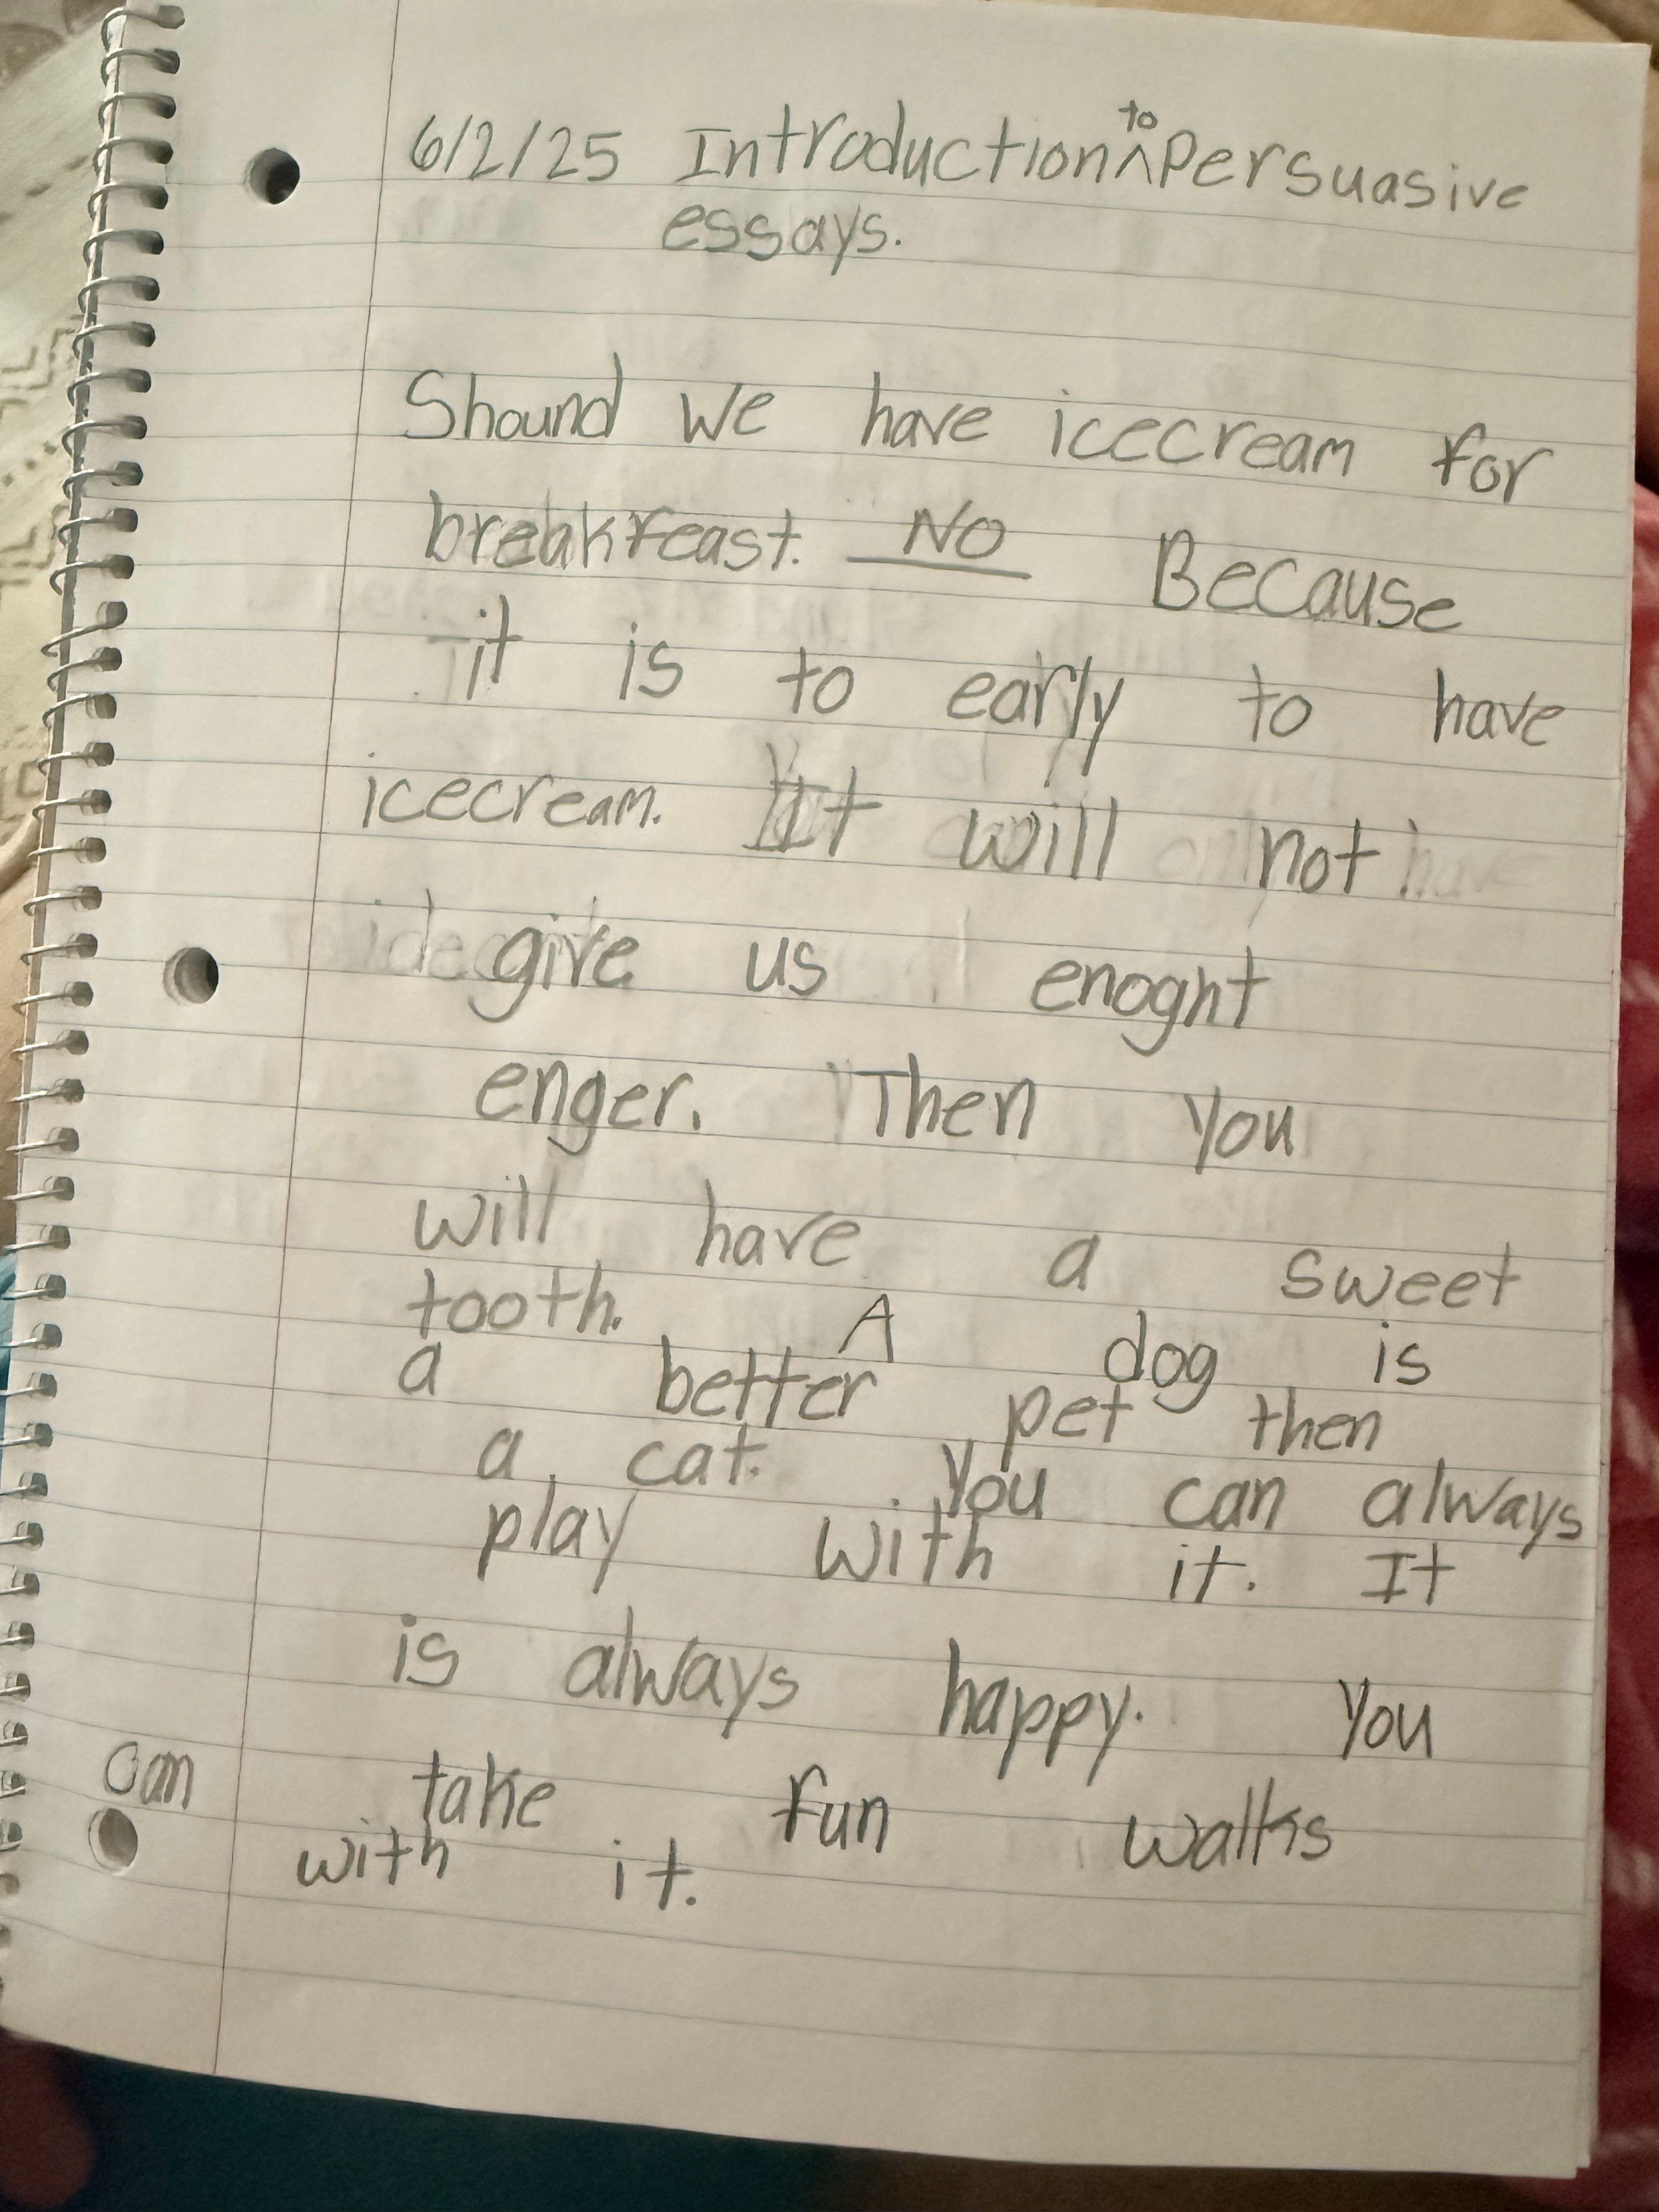 6/2/25 Introduction to Persuasive
essays.
Shound we have icecream for
breakfeast. NO Because
it is to early to have
icecream. It will not
give us enoght
enger. Then you
will have a sweet
tooth. A dog is
a better pet then
a cat. You can always
play with it. It
is always happy. You
can take fun walks
with it.